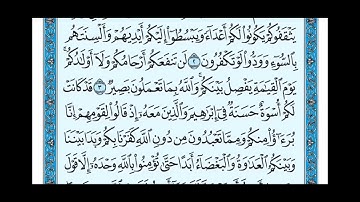 يَثۡقَفُوكُمۡ يَكُونُواْ لَكُمۡ أَعۡدَآءٗ وَيَبۡسُطُوٓاْ إِلَيۡكُمۡ أَيۡدِيَهُمۡ وَأَلۡسِنَتَهُم
بِٱلسُّوٓءِ وَوَدُّواْ لَوۡ تَكۡفُرُونَ ٢ لَن تَنفَعَكُمۡ أَرۡحَامُكُمۡ وَلَآ أَوۡلَٰدُكُمۡۚ
يَوۡمَ ٱلۡقِيَٰمَةِ يَفۡصِلُ بَيۡنَكُمۡۚ وَٱللَّهُ بِمَا تَعۡمَلُونَ بَصِيرٞ ٣ قَدۡ كَانَتۡ
لَكُمۡ أُسۡوَةٌ حَسَنَةٞ فِيٓ إِبۡرَٰهِيمَ وَٱلَّذِينَ مَعَهُۥٓ إِذۡ قَالُواْ لِقَوۡمِهِمۡ إِنَّا
بُرَءَٰٓؤُاْ مِنكُمۡ وَمِمَّا تَعۡبُدُونَ مِن دُونِ ٱللَّهِ كَفَرۡنَا بِكُمۡ وَبَدَا بَيۡنَنَا
وَبَيۡنَكُمُ ٱلۡعَدَٰوَةُ وَٱلۡبَغۡضَآءُ أَبَدًا حَتَّىٰ تُؤۡمِنُواْ بِٱللَّهِ وَحۡدَهُۥٓ إِلَّا قَوۡلَ